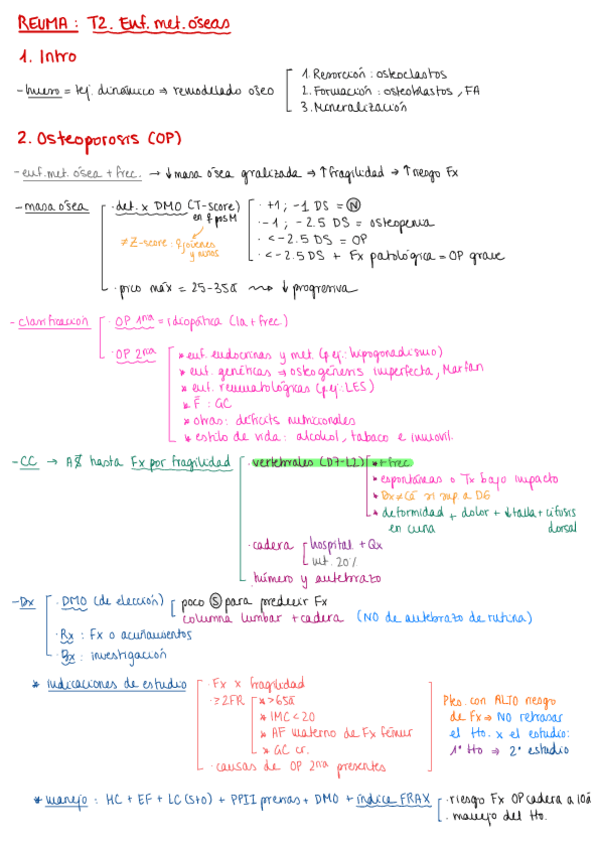 REUMA: T2. Enf. met. óseas
1. Intro
- hueso = tej. dinámico ⇒ remodelado óseo
1. Resorción: osteoclastos
2. Formación: osteoblastos, FA
3. Mineralización
2. Osteoporosis (OP)
- enf. met. ósea + frec. → ↓ masa ósea gralizada → ↑ fragilidad → ↑ riesgo Fx
- masa ósea
· det. x DMO (T-score)
en ♀ posM
≠ Z-score: ♀ jóvenes
y niños
· +1; -1 DS = Ⓝ
· -1; -2.5 DS = osteopenia
· <-2.5 DS = OP
· <-2.5 DS + Fx patológica = OP grave
· pico máx = 25-35a ⇝ ↓ progresiva
- clasificación
· OP 1ria = idiopática (la + frec)
· OP 2ria
* enf. endocrinas y met. (p.ej.: hipogonadismo)
* enf. genéticas ⇒ osteogénesis imperfecta, Marfan
* enf. reumatológicas (p.ej: LES)
* F: GC
* otras: déficits nutricionales
* estilo de vida: alcohol, tabaco e inmovil.
- CC → AS hasta Fx por fragilidad
· vertebrales (D7-L2)
* + frec
* espontáneas o Tx bajo impacto
* si sup. a D6
* deformidad + dolor + ↓ talla + cifosis
en cuña dorsal
· cadera
hospital + Qx
20%
· húmero y antebrazo
- Dx
· DMO (de elección)
poco Ⓢ para predecir Fx
columna lumbar + cadera (NO de antebrazo de rutina)
· Rx: Fx o acuñamientos
· Bx: investigación
* indicaciones de estudio
· Fx x fragilidad
· ≥2FR
* >65a
* IMC<20
* AF materno de Fx fémur
* GC cr.
· causas de OP 2ria presentes
Ptes. con ALTO riesgo
de Fx ⇒ NO retrasar
el tto. x el estudio:
1º tto ⇒ 2º estudio
* manejo: HC + EF + LC (sto) + PPII previas + DMO + índice FRAX
· riesgo Fx OP cadera a 10a
· manejo del tto.